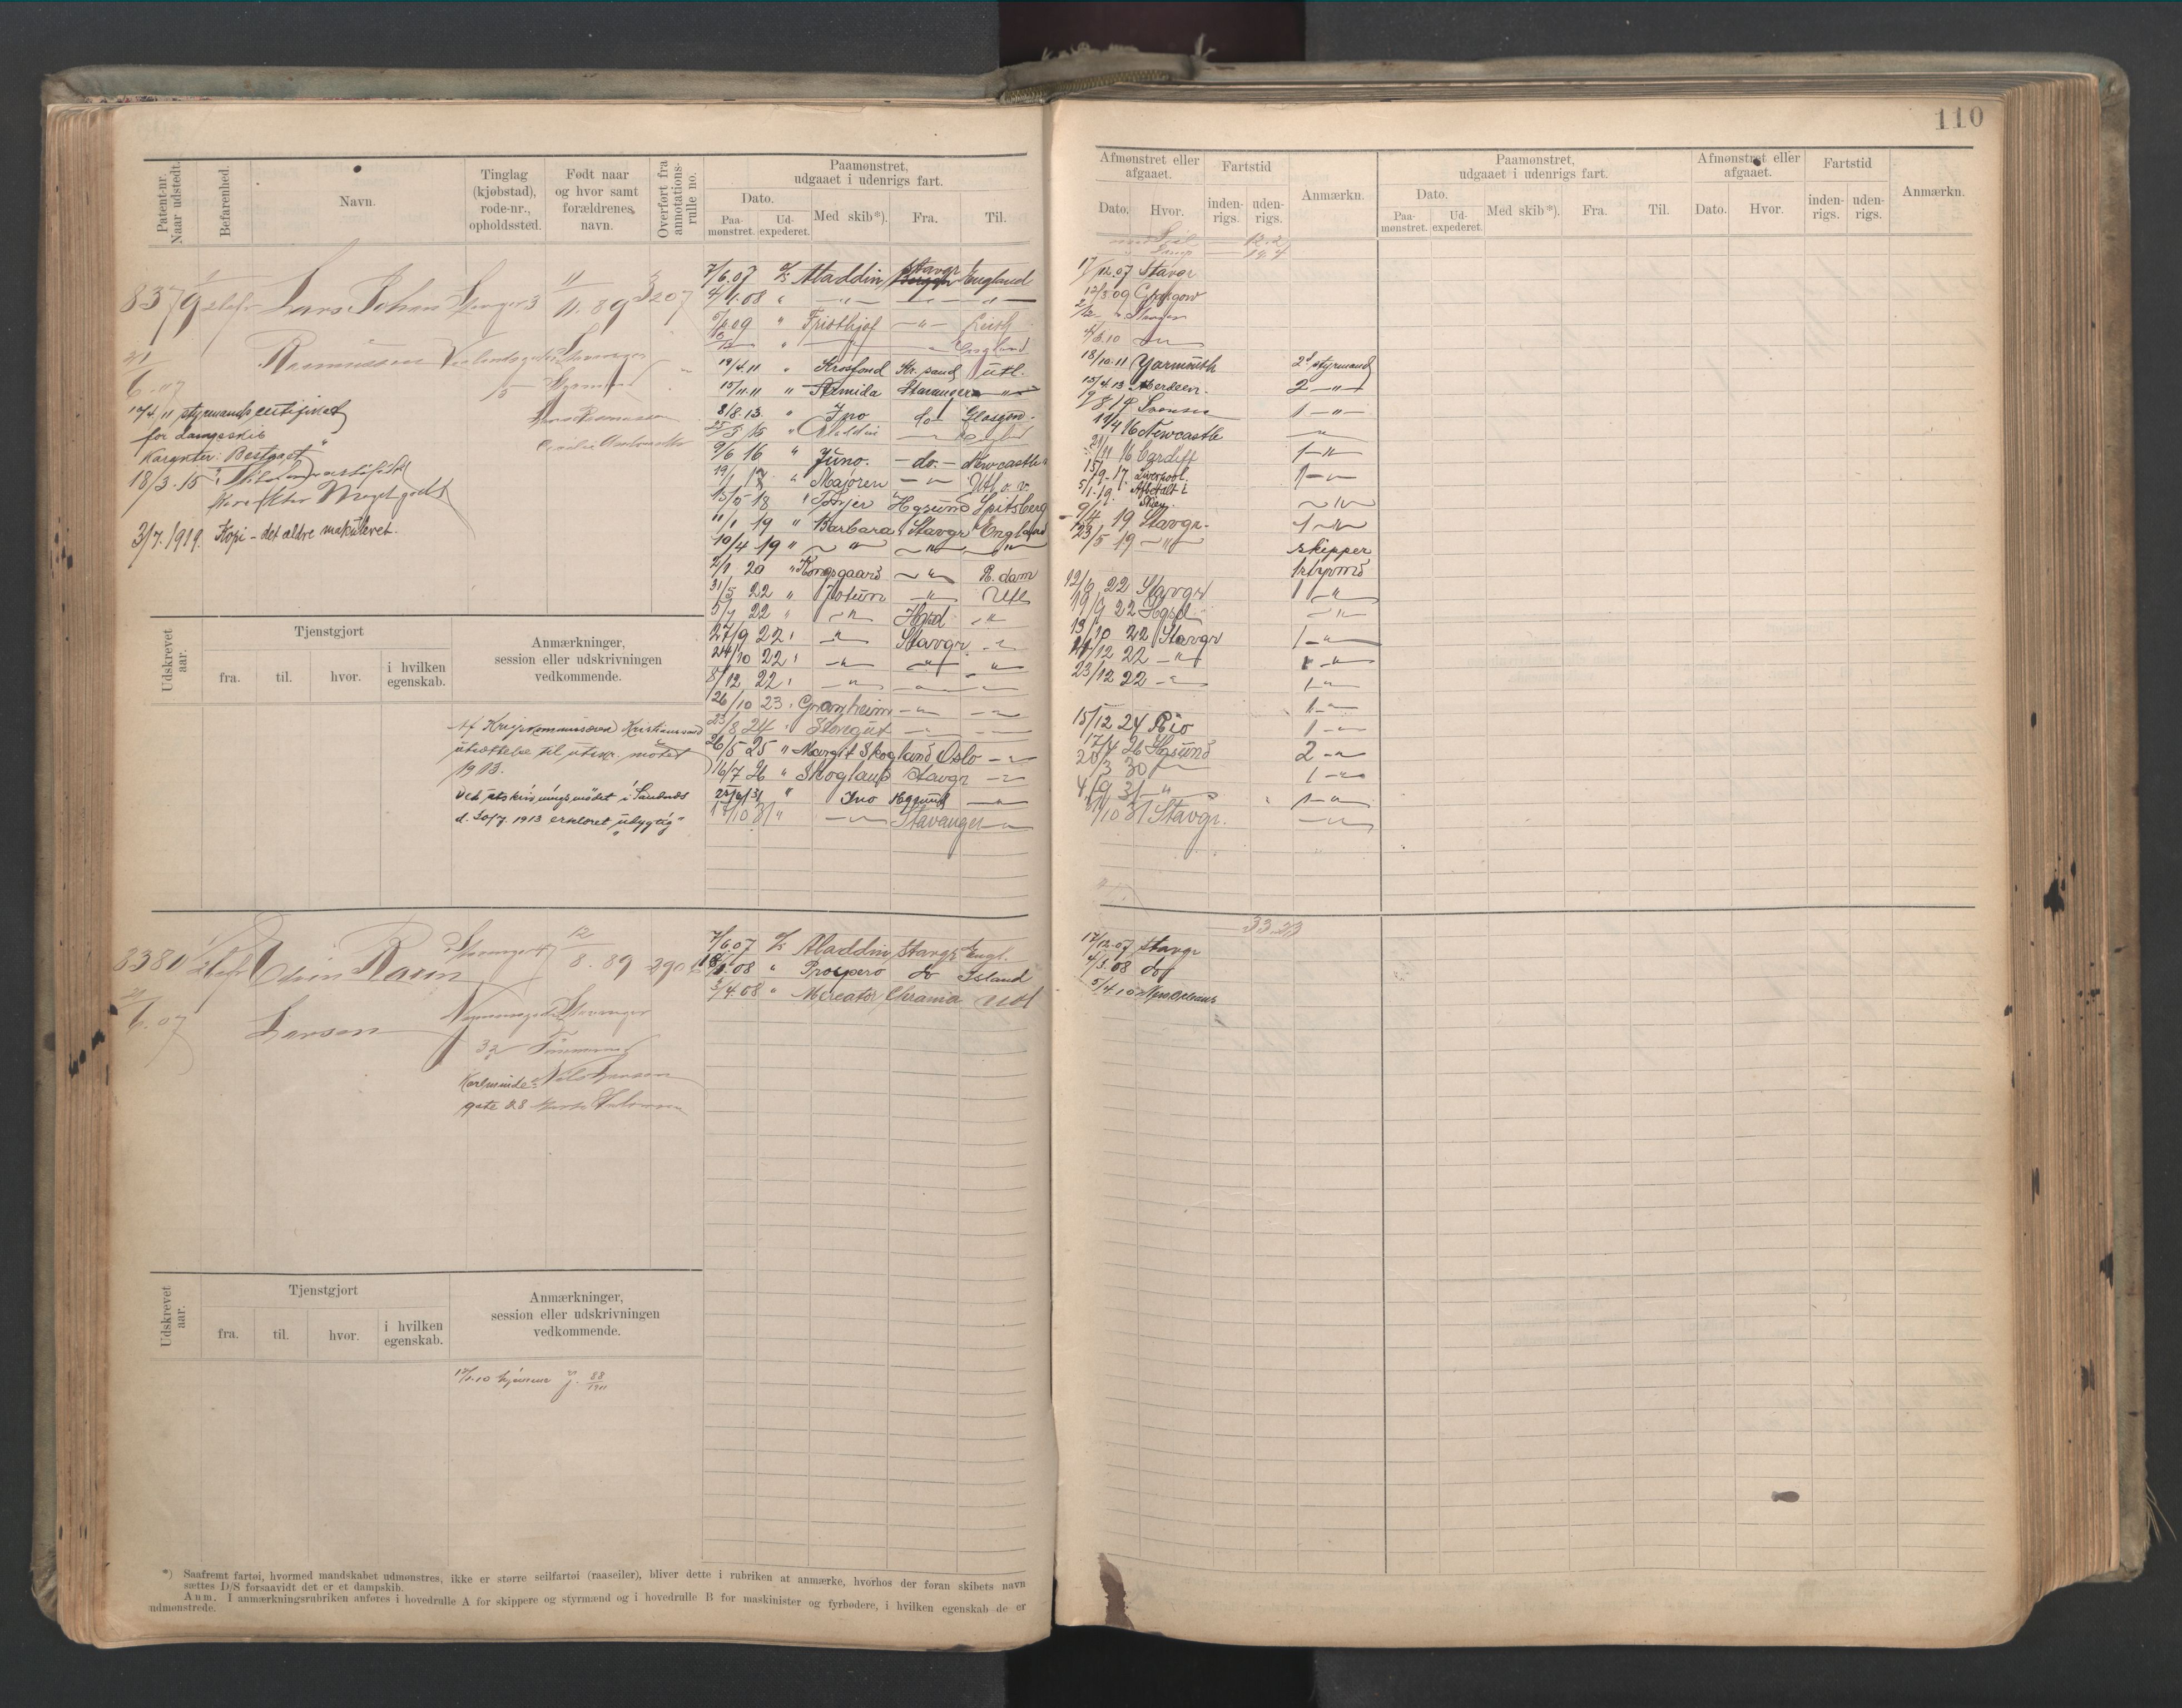 110
Patent-nr.
Naar udstedt.
Befarenhed.
Navn.
Tinglag
(kjøbstad),
rode-nr.,
opholdssted.
Født naar
og hvor samt
forældrenes
navn.
Overført fra
annotations-
rulle no.
Paamønstret,
udgaaet i udenrigs fart.
Dato.
Paa-
mønstret.
Ud-
expederet.
Med skib*).
Fra.
Til.
Afmønstret eller
afgaaet.
Dato.
Hvor.
Fartstid
inden-
rigs.
uden-
rigs.
Anmærkn.
Paamønstret,
udgaaet i udenrigs fart.
Dato.
Paa-
mønstret.
Ud-
expederet.
Med skib*).
Fra.
Til.
Afmønstret eller
afgaaet.
Dato.
Hvor.
Fartstid
inden-
rigs.
uden-
rigs.
Anmærkn.
8379 Lars Johan 3 11/11.89 3207
Rasmussen Stavanger
6.07 15
12/4 11 styrmandscertifikat
for dampskib
Karakter: Bestaaet"
18/3.15
Karakter Meget godt
3/7.1919. Kopi - det ældre makuleret.
7/6.07 Aladdin Stavgr England
4/1.08 " — " — — " — "
09 " Fridthjof — " — Leith
" England
19/4.11 " Krosfond Kr.sand utl.
15/11.11 " Armida Stavanger — " —
8/8.13. " Ino do Glasgow
15 " Aladdin — England
9/6 16 " Juno. — do. — Newcastle
19/1 17 " Majoren — " — Utl. o. v.
15/5 18 " Hgsund Spitsberg
11/1 19 " Barbara Stavgr England
10/4 19 " — " — " — "
2/1 20 " Kongsgaard — " R.dam
31/5 22 " Jotun — " Utl
5/7 22 " — " Hgsd — "
27/9 22 " — " Stavgr. — "
24/10 22 " — " — " — "
8/12 22 " — " — " — "
26/10 23 " Granheim — " — "
23/8 24 " — " — "
26/5 25 " Margit Skogland Oslo — "
16/7 26 " Skogland Stavgr — "
31 " Ino Hgsund — "
17/10 31 " — " Stavanger — "
Seil — 12.2
Damp — 12.4
17/12.07 Stavgr
12/3 09 Glasgow
2/12 " Stavgr
4/3.10 — "
18/10.11 Yarmouth 2d styrmand
15/4 13 Aberdeen. 2 — " —
8/14 Svansea 1 — " —
19/4 16 Newcastle — " —
11 16 Cardiff 1 — " —
15/9.17. Liverpool. 1 — " —
5/1.19. Afbetalt i
Skien. — " —
9/4 19 Stavgr. 1 — " —
23/5 19 — " — skipper
1ste styrmd
12/6 22 Stavgr 1 — "
19/9 22 Hgsd — "
13/10 22 Stavgr 1 — "
12 22 — " 1 — "
23/12 22 — " 1 — "
1 — "
15/12 24 Rio 1 — "
17/4 26 Hgsund 2 — "
20/3 30 — " 1 — "
4/9 31 — " 1 — "
10 31 Stavgr. — " —
Udskrevet
aar.
Tjenstgjort
fra.
til.
hvor.
i hvilken
egenskab.
Anmærkninger,
session eller udskrivningen
vedkommende.
Af Krigskommissæren Kristianssand
utsættelse til utskr. mötet
1913.
Ved utskrivningsmödet i Sandnes
d. 30/7. 1913 erklæret "udygtig"
8380 12/8.89 290
Larsen
6.07
Stavanger
32
Nils Larsen
gate 28
7/6.07 Aladdin Stavgr Engl.
18/1.08 " Prospero do Island
3/4.08 " Mercator Chrania Utl
33.23
17/12.07 Stavgr
4/3.08 do
5/4 10 New Orleans
Udskrevet
aar.
Tjenstgjort
fra.
til.
hvor.
i hvilken
egenskab.
Anmærkninger,
session eller udskrivningen
vedkommende.
.10 hjemme j. 88/1911
*) Saafremt fartøi, hvormed mandskabet udmønstres, ikke er større seilfartøi (raaseiler), bliver dette i rubriken at anmærke, hvorhos der foran skibets navn
sættes D/S forsaavidt det er et dampskib.
Anm. I anmærkningsrubriken anføres i hovedrulle A for skippere og styrmænd og i hovedrulle B for maskinister og fyrbødere, i hvilken egenskab de er
udmønstrede.